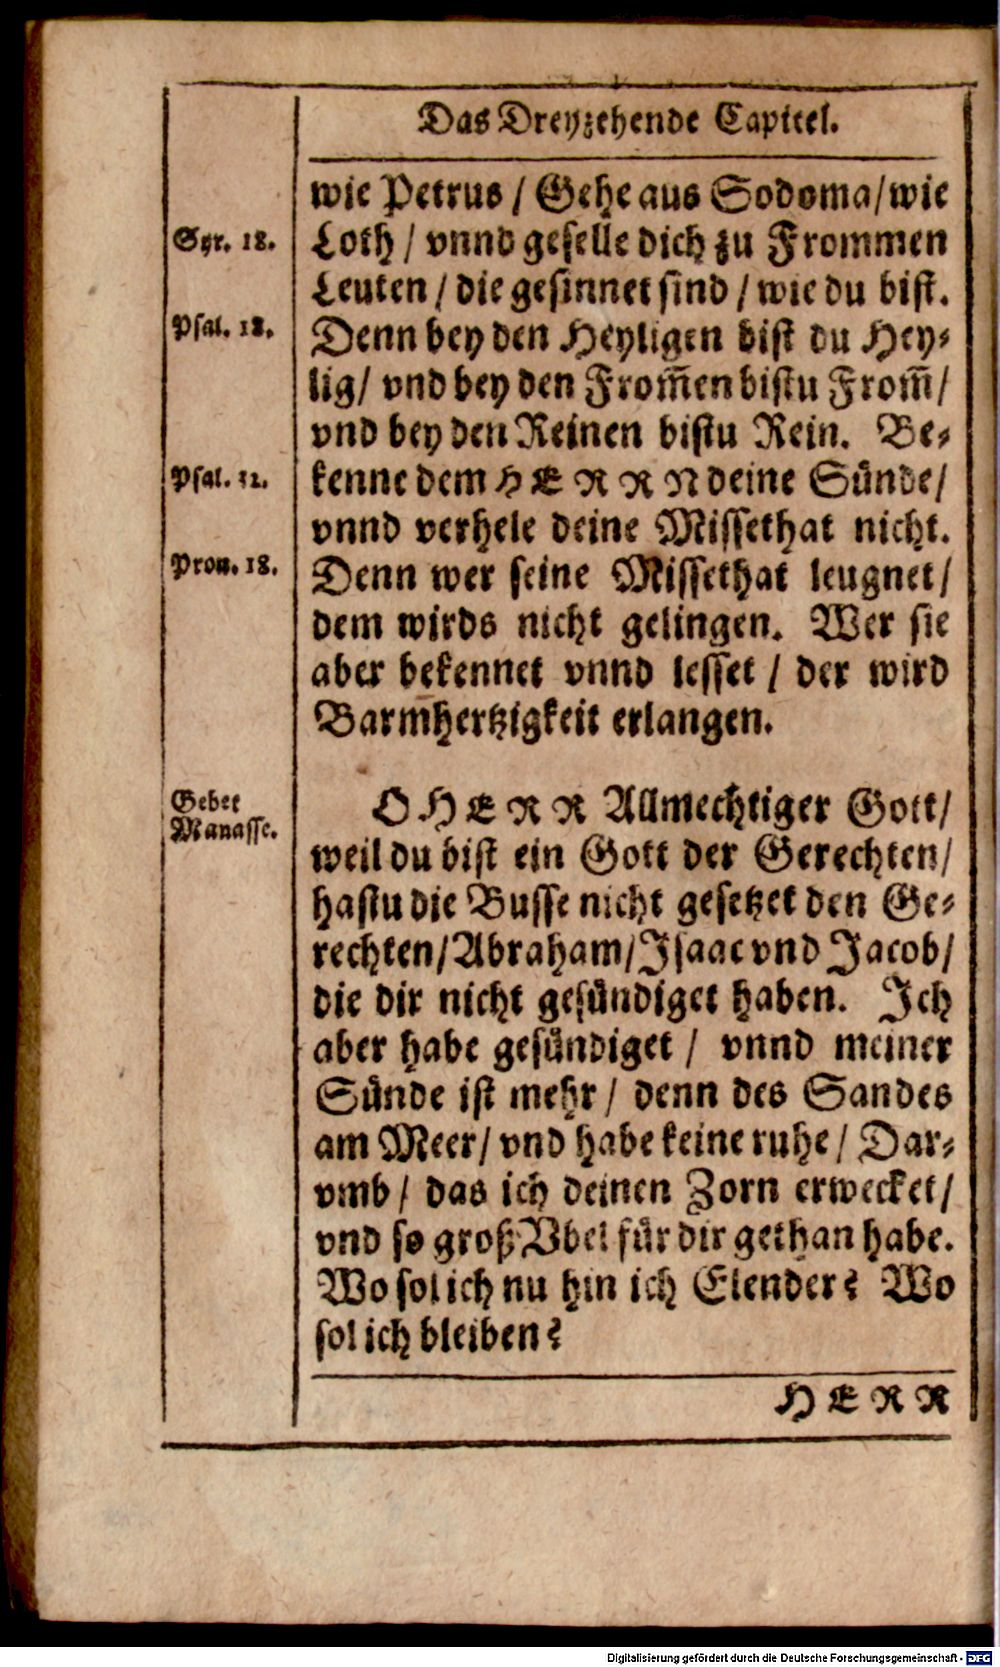 Das Dreyzehende Capitel.
wie Petrus / Gehe aus Sodoma / wie
Syr. 18.
Loth / vnnd geselle dich zu Frommen
Leuten / die gesinnet sind / wie du bist.
Psal. 18.
Denn bey den Heyligen bist du Hey-
lig / vnd bey den From̃en bistu From̃ /
vnd bey den Reinen bistu Rein. Be-
Psal. 32.
kenne dem HERRN deine Sünde /
vnnd verhele deine Missethat nicht.
Prou. 18.
Denn wer seine Missethat leugnet /
dem wirds nicht gelingen. Wer sie
aber bekennet vnnd lesset / der wird
Barm̃hertzigkeit erlangen.
Gebet
Manasse.
O HERR Allmechtiger Gott /
weil du bist ein Gott der Gerechten /
hastu die Busse nicht gesetzet den Ge-
rechten / Abraham / Isaac vnd Jacob /
die dir nicht gesündiget haben. Ich
aber habe gesündiget / vnnd meiner
Sünde ist mehr / denn des Sandes
am Meer / vnd habe keine ruhe / Dar-
vmb / das ich deinen Zorn erwecket /
vnd so groß Vbel für dir gethan habe.
Wo sol ich nu hin ich Elender? Wo
sol ich bleiben?
HERR
Digitalisierung gefördert durch die Deutsche Forschungsgemeinschaft - DFG